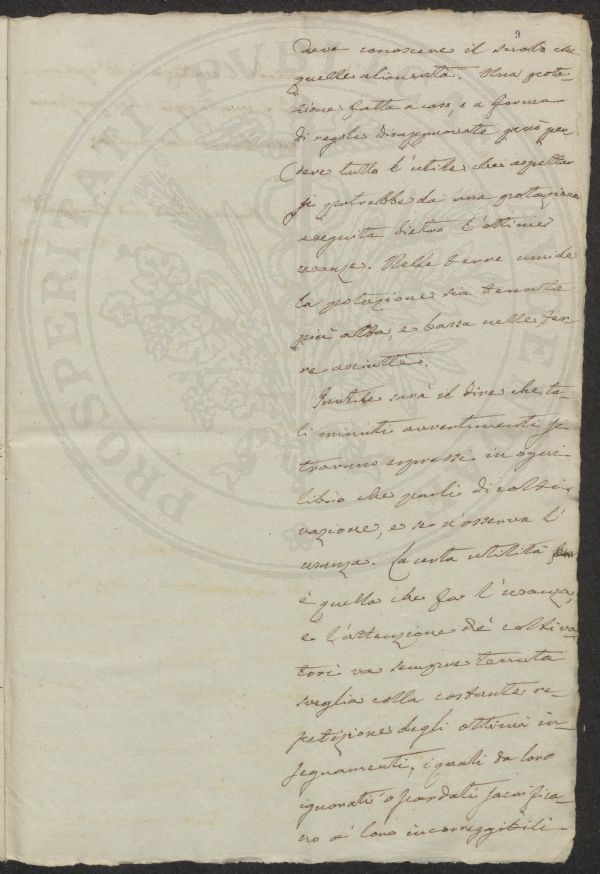 9
deve conoscere il suolo che
quelle alimenta. Una pota-
zione fatta a caso, o a forma
di regole disapprovate può per-
dere tutto l'utile che aspettar
si potrebbe da una potazione
eseguita dietro l'ottime
usanze. Nelle terre umide
la potazione sia tenuta
più alta, e bassa nelle ter-
re asciutte.
Inutile sarà il dire che ta-
li minuti avvertimenti si
trovano espressi in ogni
libro che parli di colti-
vazione, e se n'osserva l'
usanza. La certa utilità
è quella che fa l'usanza,
e l'attenzione de' coltiva-
tori va sempre tenuta
sveglia colla costante re-
petizione degli ottimi in-
segnamenti, i quali da loro
ignorati o scordati sacrifica-
no a' loro incorreggibili
PROSPERITATI PVBLICAE